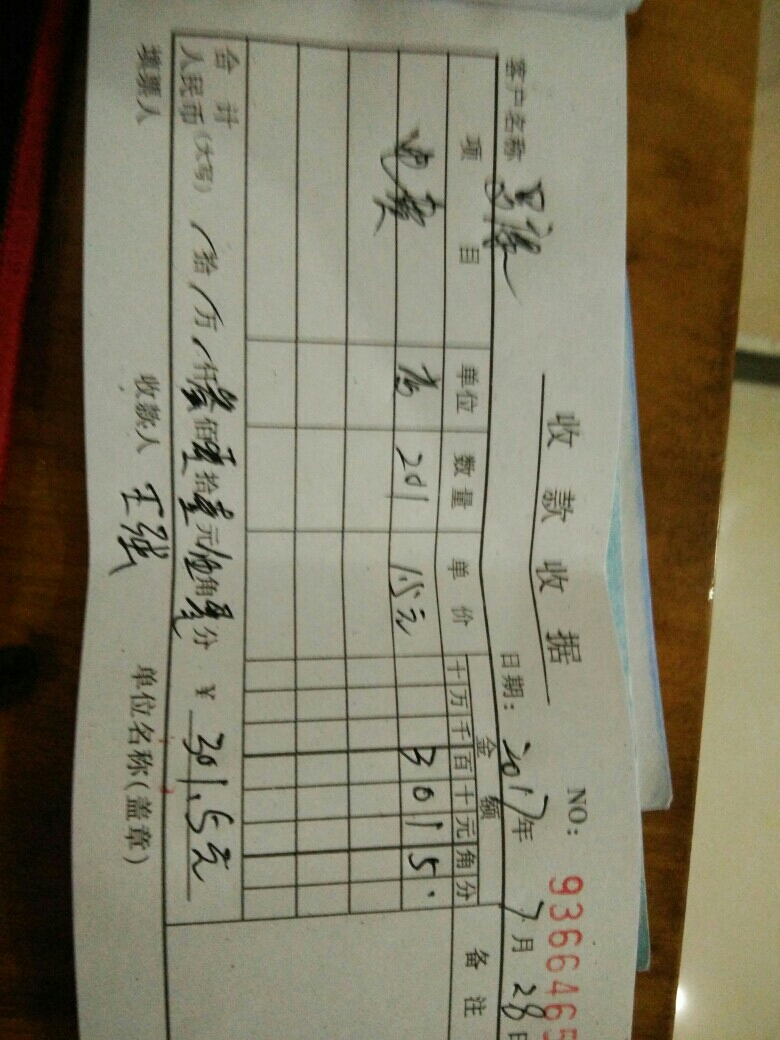 收款收据
NO: 9366465
客户名称
日期: 2017年7月28日
项目 单位 数量 单价 金额 备注
十万千百十元角分
电费 201 1.5元 30150
合计人民币(大写) 拾 万 仟叁佰零拾壹元伍角零分 ¥ 301.5元
填票人 收款人 王强 单位名称(盖章)